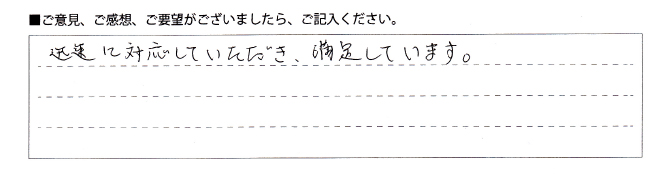 ■ご意見、ご感想、ご要望がございましたら、ご記入ください。
迅速に対応していただき、満足しています。